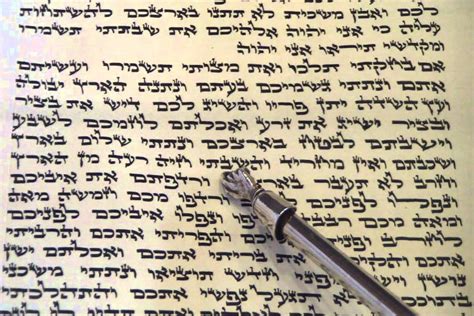 לכם ואבן משכית לא תתנו בארצכם להשתחות
עליה כי אני יהוה אלהיכם את שבתתי תשמרו
ומקדשי תיראו אני יהוה
אם בחקתי תלכו ואת מצותי תשמרו ועשיתם
אתם ונתתי גשמיכם בעתם ונתנה הארץ יבולה
ועץ השדה יתן פריו והשיג לכם דיש את בציר
ובציר ישיג את זרע ואכלתם לחמכם לשבע
וישבתם לבטח בארצכם ונתתי שלום בארץ
ושכבתם ואין מחריד והשבתי חיה רעה מן הארץ
וחרב לא תעבר בארצכם ורדפתם את איביכם
ונפלו לפניכם לחרב ורדפו מכם חמשה מאה
ומאה מכם רבבה ירדפו ונפלו איביכם
לפניכם לחרב ופניתי אליכם והפריתי אתכם
והרביתי אתכם והקימתי את בריתי אתכם ואכלתם
ישן נושן וישן מפני חדש תוציאו ונתתי משכני
בתוככם ולא תגעל נפשי אתכם והתהלכתי